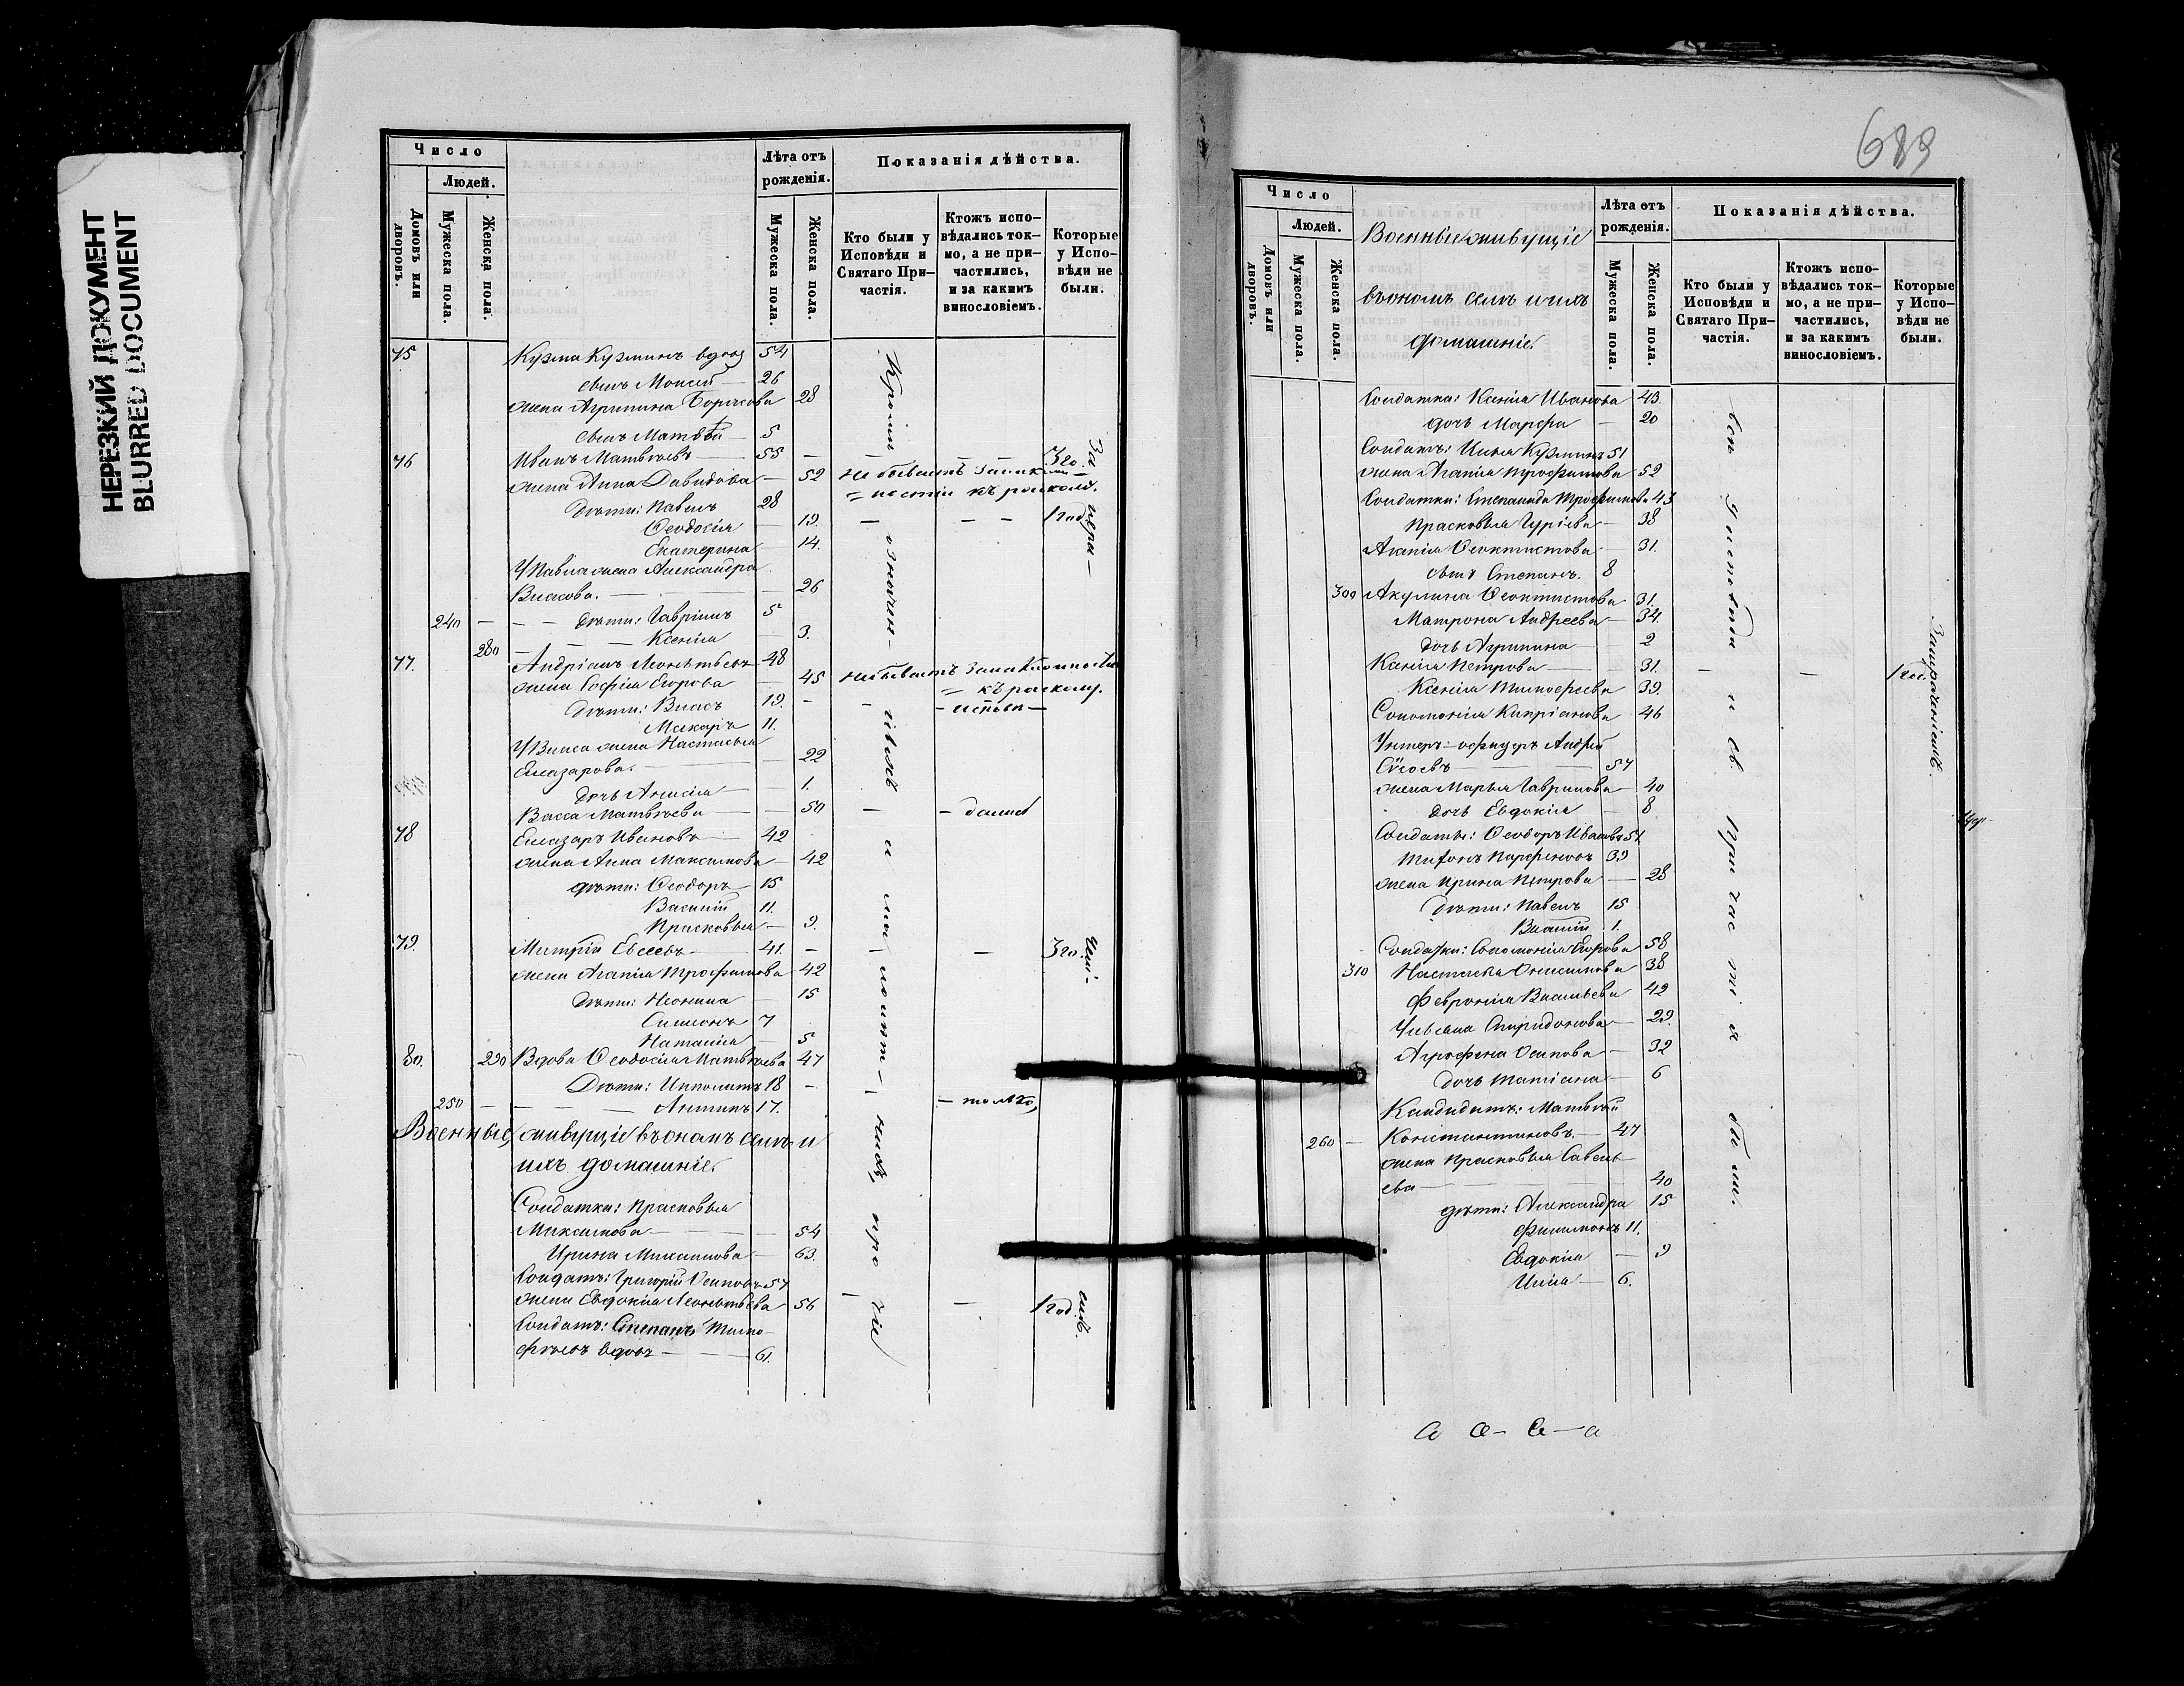 НЕРЕЗКИЙ ДОКУМЕНТ
BLURRED DOCUMENT
Число
Людей.
Домовъ или дворовъ.
Мужеска пола.
Женска пола.
Лѣта отъ рожденія.
Мужеска пола.
Женска пола.
Показанія дѣйства.
Кто были у Исповѣди и Святаго При-
частія.
Ктожъ испо-
вѣдались ток-
мо, а не при-
частились,
и за какимъ
винословіемъ.
Которые
у Испо-
вѣди не
были.
75 Кузма Кузминъ вдовъ 54
сынъ Моисей 26
жена Агрипина Борисова 28
сынъ Матвѣй 5
76 Иванъ Матвѣевъ 55 — — — 3 го.
жена Анна Давидова — 52 не бываетъ
къ расколу.
Дѣти: Павелъ 28
Ѳеодосія 19. — — — 1 год.
Екатерина 14.
У Павла жена Александра
Власова. — 26
240 — — — дѣти: Гавріилъ 5
280 — — — Ксенія — 3.
77. Андріанъ Леонтьевъ 48
жена Софія Егорова — 45 не бываетъ
къ расколу.
Дѣти: Власъ 19.
Макаръ 11.
У Власа жена Настасья
Елеазарова. — 22
дочь Анисія — 1.
Васса Матвѣева — 50
78 Елеазаръ Ивановъ 42
жена Анна Максимова — 42
дѣти: Ѳеодоръ 15
Василій 11.
Прасковья — 9.
79. Митрій Евсеевъ — 41. — — 3 го.
жена Агапія Трофимова 42
Дѣти: Неонила — 15
Симеонъ 7
Наталія — 5
80. 290 Вдова Ѳеодосія Матвѣева 47
Дѣти: Ипполитъ 18 —
250 — — — Антипъ 17. — только,
Кромѣ означен-
ніе
Военные, живущіе въ ономъ селѣ и
ихъ домашніе.
Солдатка: Прасковья
Максимова — 54
Ирина Максимова — 63.
Солдатъ: Григорій Осиповъ 57
жена Евдокія Леонтьева 56 — — 1 год.
Солдатъ: Степанъ Тимо-
фѣевъ вдовъ — 61.
689
Число
Людей.
Домовъ или дворовъ.
Мужеска пола.
Женска пола.
Военные живущіе
въ ономъ селѣ и ихъ
домашніе.
Лѣта отъ рожденія.
Мужеска пола.
Женска пола.
Показанія дѣйства.
Кто были у
Исповѣди и
Святаго При-
частія.
Ктожъ испо-
вѣдались ток-
мо, а не при-
частились,
и за какимъ
винословіемъ.
Которые
у Испо-
вѣди не
были.
Солдатка: Ксенія Иванова 43.
дочь Марфа — 20
Солдатъ: Илья Кузминъ 51
жена Агапія Трофимова 52
Солдатки: Степанида Трофимова 43
Прасковья Гуріева — 38
Агапія Ѳеоктистова — 31.
сынъ Степанъ. 8
300 Акулина Ѳеоктистова 31.
Матрона Андреева — 34.
дочь Агрипина — 2
Ксенія Петрова — 31. — — 1 год.
Ксенія Тимофеева 39.
Соломонія Кипріанова 46
Унтеръ-офицеръ Андрей
Сысоевъ — 57
жена Марья Гаврилова — 40
дочь Евдокія — 8
Солдаты: Ѳеодоръ Ивановъ 51
Тихонъ Парфеновъ 39
жена Ирина Петрова — 28
Дѣти: Павелъ 15
Василій 1.
Солдатки: Соломонія Егорова 58.
310 Настасья Онисимова 38
Февронія Васильева 42
Ульяна Спиридонова — 29.
Агрофена Осипова — 32
дочь Татіана — 6
Кандидатъ: Матвѣй
260 — Константиновъ. — 47
жена Прасковья Савель-
ева — 40
дѣти: Александра 15
Филимонъ 11.
Евдокія — 9
Илія — 6.
вси у исповѣди и св. причастія были.